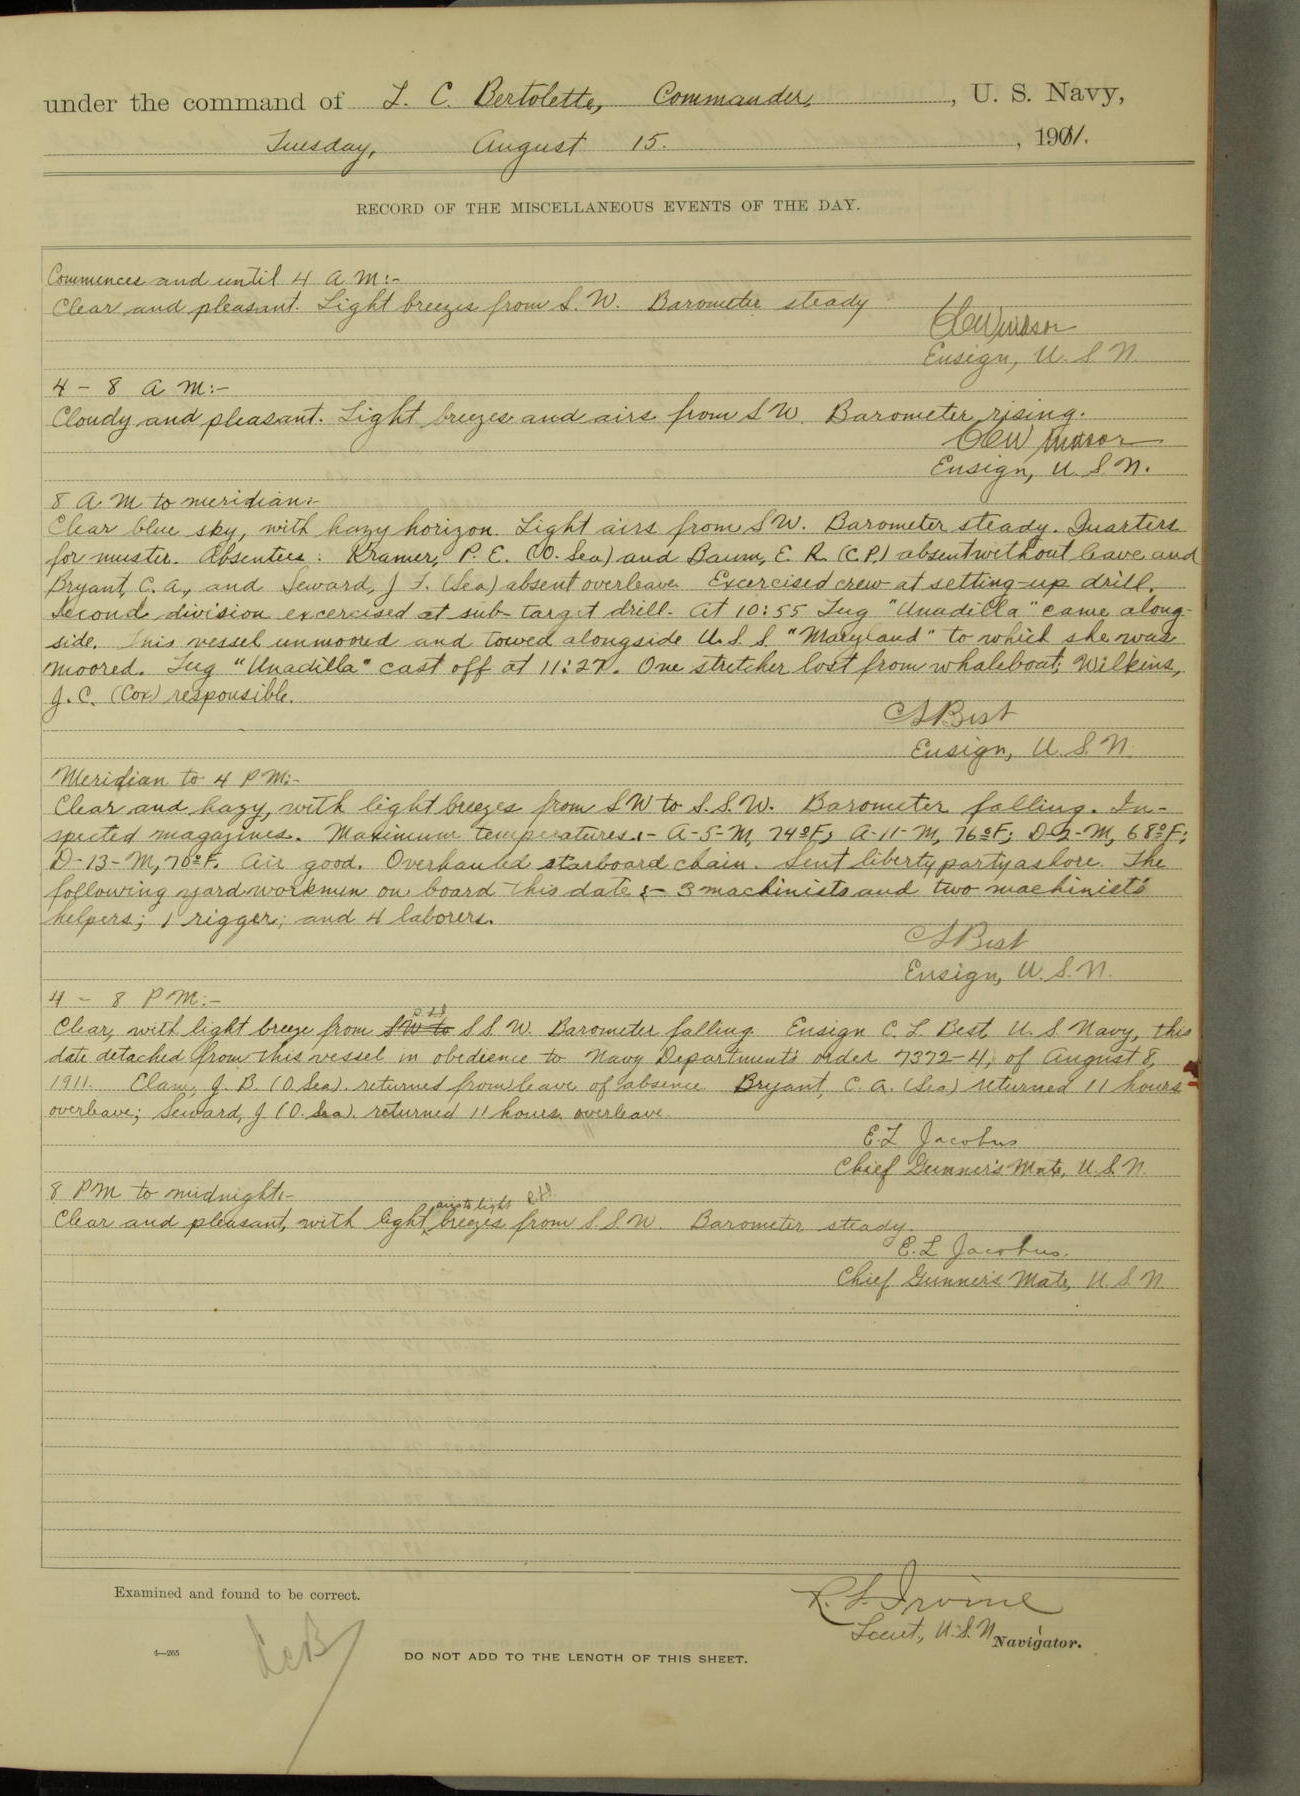 under the command of L. C. Bertolette, Commander, U. S. Navy,
Tuesday, August 15. , 1911.
RECORD OF THE MISCELLANEOUS EVENTS OF THE DAY.
Commences and until 4 A M:-
Clear and pleasant. Light breezes from S.W. Barometer steady
Windsor
Ensign, U. S. N.
4 - 8 A M:-
Cloudy and pleasant. Light breezes and airs from S W. Barometer rising.
Windsor
Ensign, U. S. N.
8 A M to meridian:-
Clear blue sky, with hazy horizon. Light airs from S W. Barometer steady. Quarters
for muster. Absentees: Kramer, P. E. (O. Sea) and Baum, E. R. (C.P.) absent without leave and
Bryant, C. A., and Seward, J. F. (Sea) absent overleave. Excercised crew at setting-up drill.
Second division excercised at sub-target drill. At 10:55 Tug "Unadilla" came along-
side. This vessel unmoored and towed alongside U.S.S. "Maryland" to which she was
moored. Tug "Unadilla" cast off at 11:27. One stretcher lost from whaleboat; Wilkins,
J. C. (Cox) responsible.
C L Best
Ensign, U. S. N.
Meridian to 4 P M:-
Clear and hazy, with light breezes from S W to S. S. W. Barometer falling. In-
spected magazines. Maximum temperatures:- A-5-M, 74°F; A-11-M, 76°F; D-2-M, 68°F;
D-13-M, 70°F. Air good. Overhauled starboard chain. Sent liberty party ashore. The
following yard workmen on board this date:- 3 machinists and two machinist's
helpers; 1 rigger; and 4 laborers.
C L Best
Ensign, U. S. N.
4 - 8 P M:-
Clear, with light breeze from SW to S S. W. Barometer falling. Ensign C. L. Best, U. S. Navy, this
date detached from this vessel in obedience to Navy Department's order 7372-4, of August 8,
1911. Elam, J. B. (O. Sea). returned from leave of absence. Bryant, C. A. (Sea) returned 11 hours
overleave; Seward, J (O. Sea). returned 11 hours overleave.
E. L. Jacobus
Chief Gunner's Mate, U. S. N.
8 P M to midnight:-
airs to light
Clear and pleasant, with light breezes from S. S. W. Barometer steady.
E. L. Jacobus.
Chief Gunner's Mate, U. S. N.
Examined and found to be correct.
R. L. Irvine
Lieut, U. S. N. Navigator.
LCB
4—265
DO NOT ADD TO THE LENGTH OF THIS SHEET.